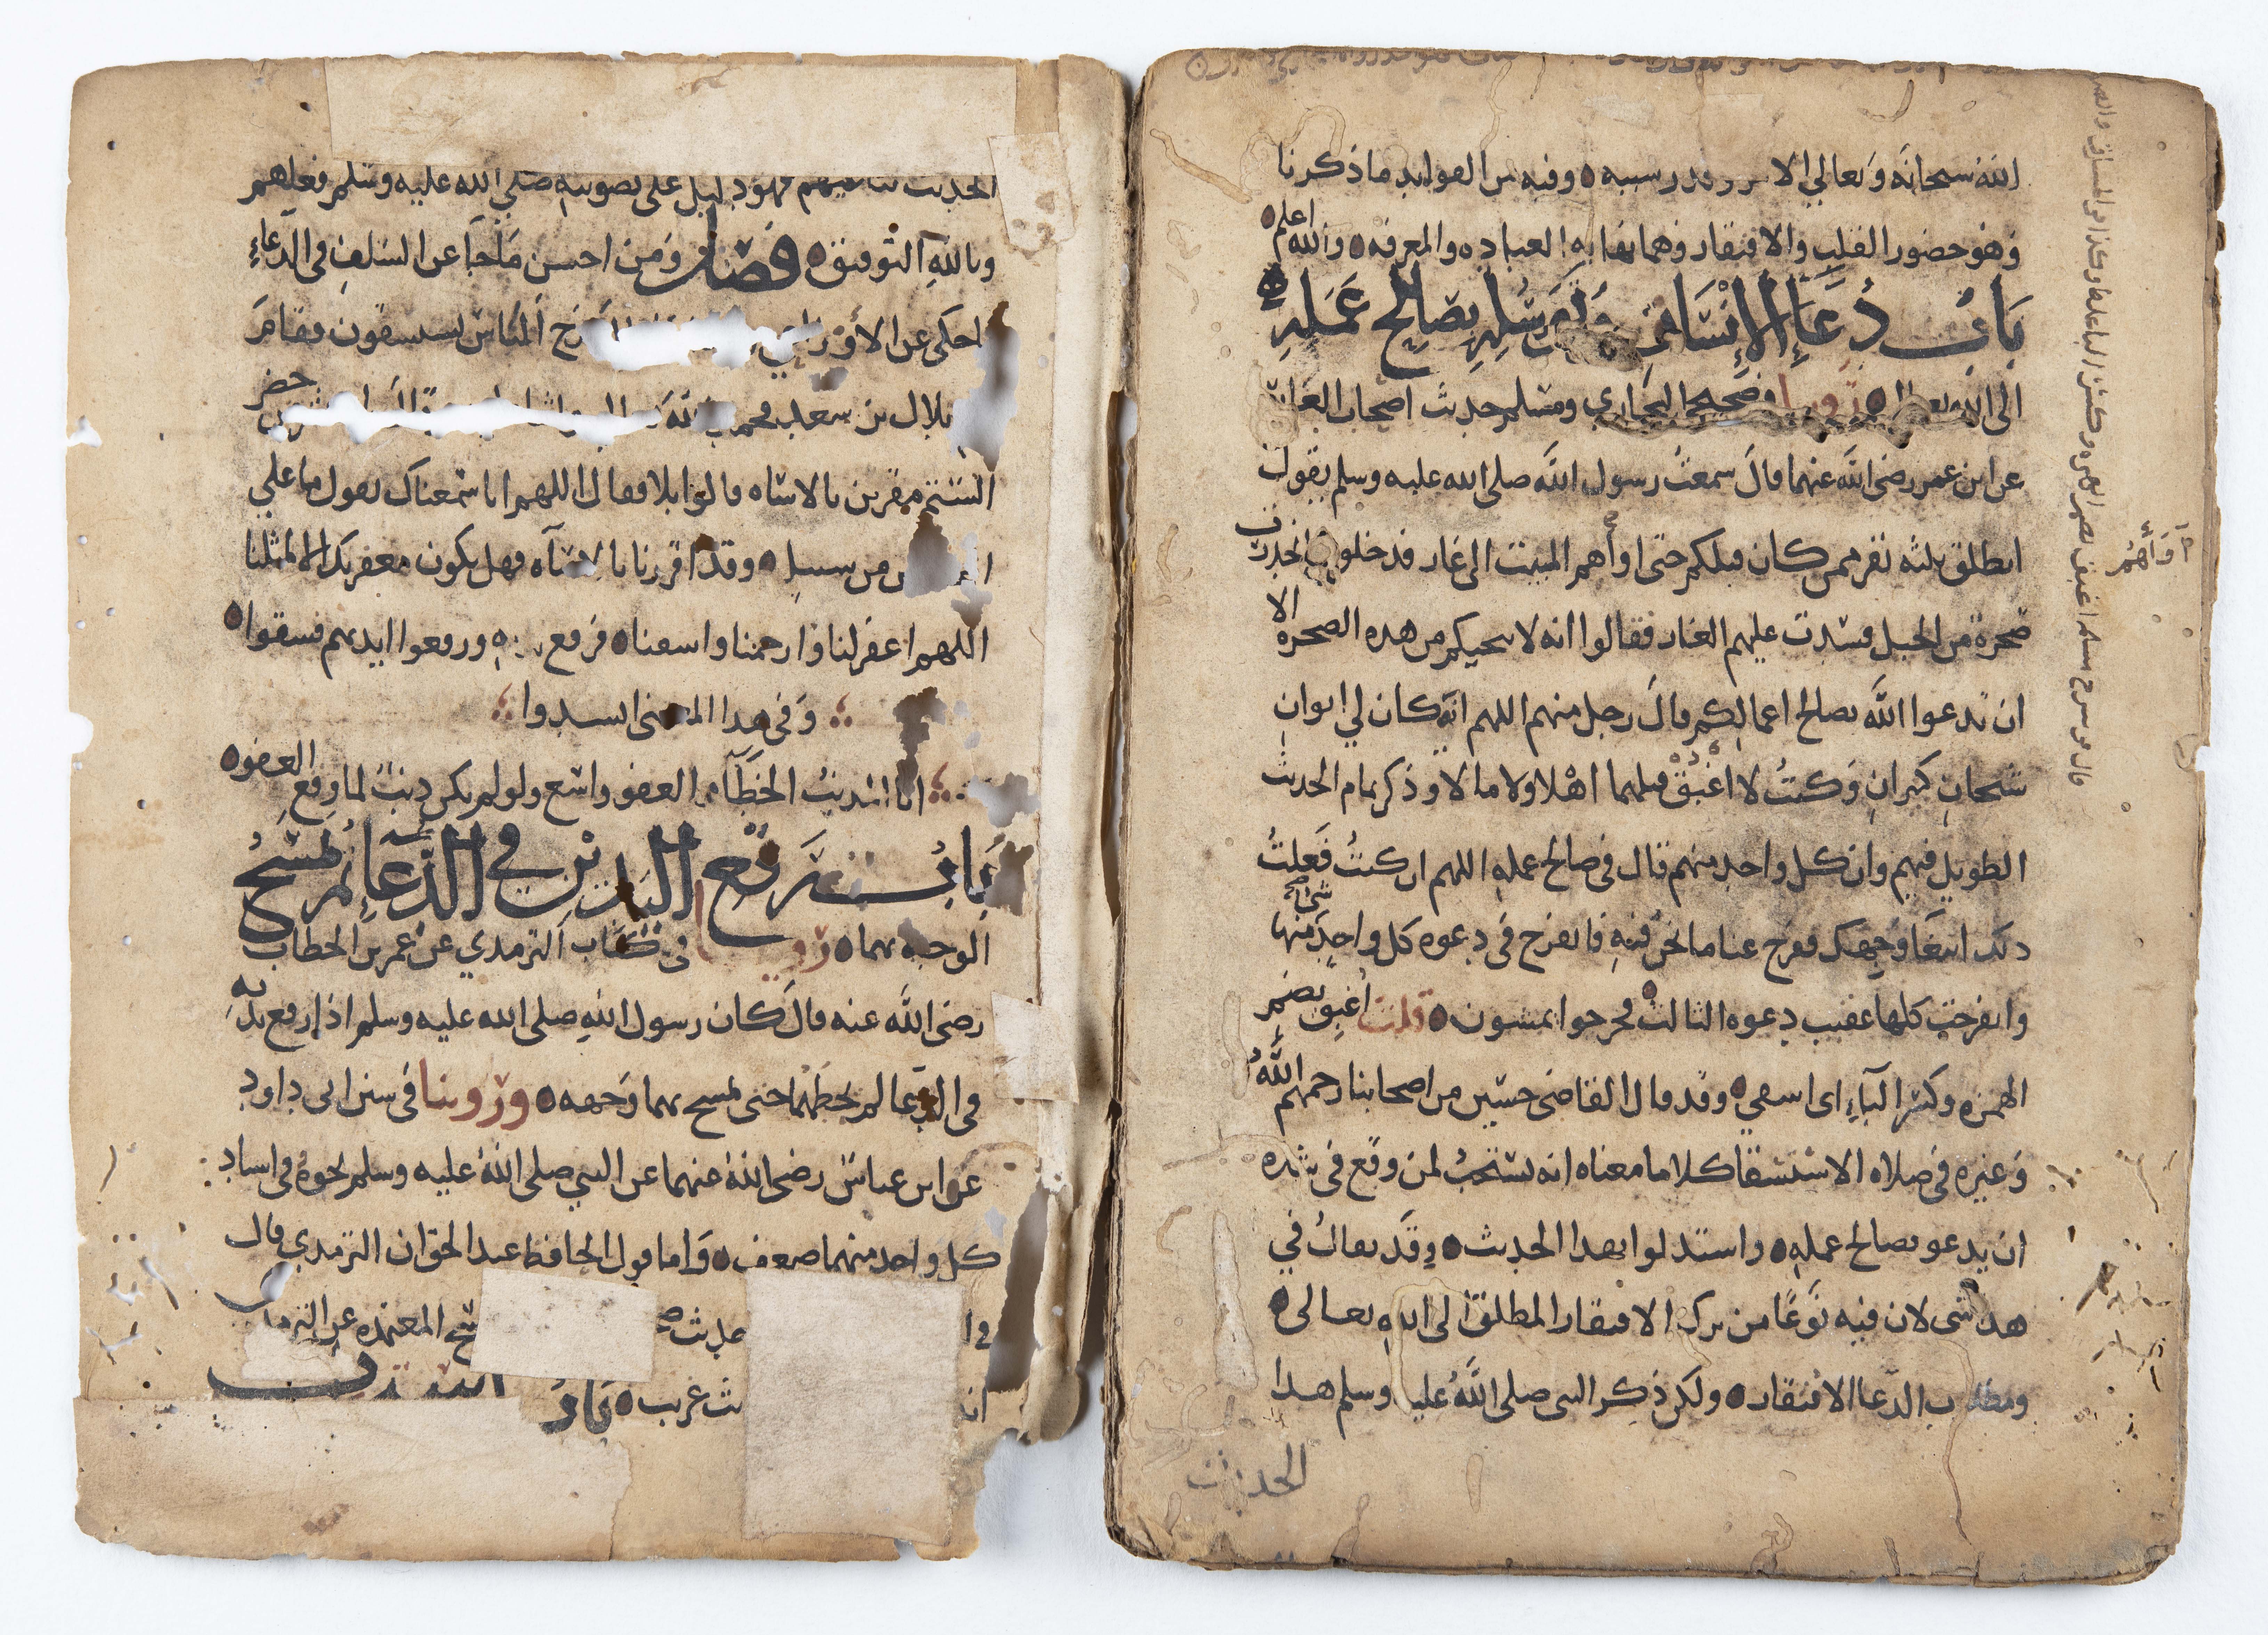 الله سبحانه وتعالى الا وفيه من الفوايد ما ذكرنا
وهو حضور القلب والافتقار وهما نهايه العباده والمعرفه والله اعلم
باب دعاء الإنسان وتوسله بصالح عمله
الى الله تعالى روينا في صحيحي البخاري ومسلم حديث اصحاب الغار
عن ابن عمر رضي الله عنهما قال سمعت رسول الله صلى الله عليه وسلم يقول
انطلق ثلثه نفر ممن كان قبلكم حتى اواهم المبيت الى غار فدخلوه فانحدرت
صخرة من الجبل فسدت عليهم الغار فقالوا انه لا ينجيكم من هذه الصخره الا
ان تدعوا الله بصالح اعمالكم قال رجل منهم اللهم انه كان لي ابوان
شيخان كبيران وكنت لا اغبق قبلهما اهلا ولا مالا وذكر تمام الحديث
الطويل فيهم وان كل واحد منهم قال في صالح عمله اللهم ان كنت فعلت
ذلك ابتغا وجهك ففرج عنا ما نحن فيه فانفرج في دعوه كل واحد منها شي
وانفرجت كلها عقيب دعوه الثالث فخرجوا يمشون قلت اغبق بضم
الهمزه وكسر الباء اي اسقي وقد قال القاضي حسين من اصحابنا رحمهم الله
وغيره في صلاه الاستسقا كلاما معناه انه يستحب لمن وقع في شده
ان يدعو بصالح عمله واستدلوا بهذا الحديث وقد يقال في
هذا شي لان فيه نوعا من ترك الافتقار المطلق الى الله تعالى
ومطلوب الدعا الافتقار ولكن ذكر النبي صلى الله عليه وسلم هذا
الحديث
وآواهم
الحديث ثنا عليهم فهو دليل على تصويبه صلى الله عليه وسلم فعلهم
وبالله التوفيق فصل ومن احسن ما جا عن السلف في الدعاء
ما حكي عن الاوزاعي خرج الناس يستسقون فقام
بلال بن سعد فحمد الله حضر
الستم مقرين بالاساه قالوا بلا فقال اللهم انا سمعناك تقول ما على
المحسنين من سبيل وقد اقررنا بالاساه فهل يكون مغفرتك الا لمثلنا
اللهم اغفر لنا وارحمنا واسقنا فرفع يديه ورفعوا ايديهم فسقوا
وفي هذا المعنى انشدوا
انا المذنب الخطاء والعفو واسع ولو لم يكن ذنب لما وقع العفو
باب رفع اليدين في الدعاء ثم مسح
الوجه بهما روينا في كتاب الترمذي عن عمر بن الخطاب
رضي الله عنه قال كان رسول الله صلى الله عليه وسلم اذا رفع يديه
في الدعا لم يحطهما حتى يمسح بهما وجهه وروينا في سنن ابي داود
عن ابن عباس رضي الله عنهما عن النبي صلى الله عليه وسلم نحوه في اسناد
كل واحد منهما ضعف واما قول الحافظ عبد الحق ان الترمذي قال
في حديث المعتمده عن الترمذ
غريب باب